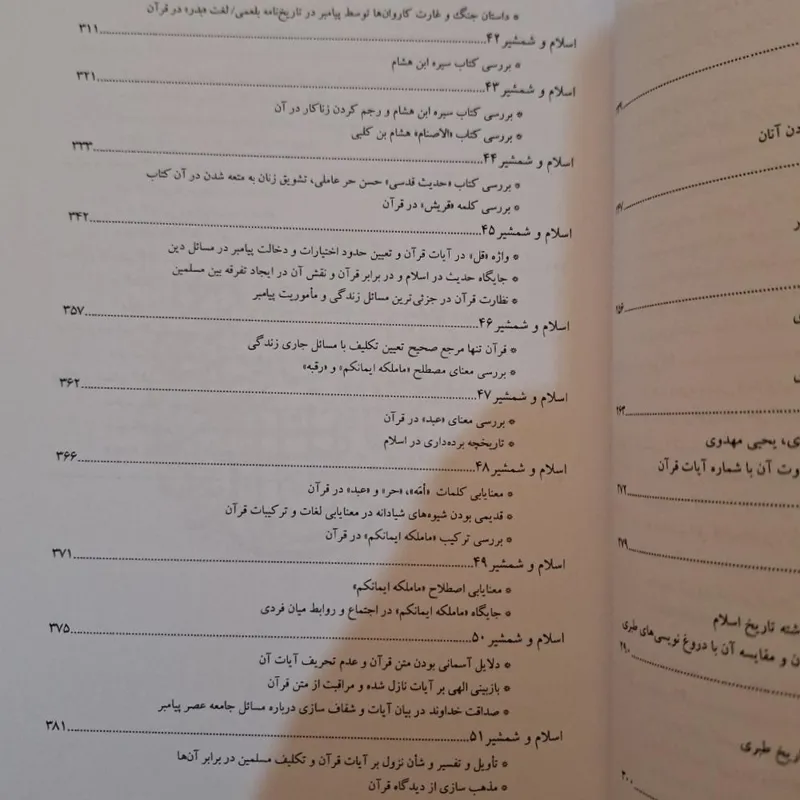 * داستان جنگ و غارت کاروان‌ها توسط پیامبر در تاریخ‌نامه بلعمی/ لغت «بدر» در قرآن
اسلام و شمشیر ۴۲ ........ ۳۱۱
* بررسی کتاب سیره ابن هشام
اسلام و شمشیر ۴۳ ........ ۳۲۱
* بررسی کتاب سیره ابن هشام و رجم کردن زناکار در آن
* بررسی کتاب «الاصنام» هشام بن کلبی
اسلام و شمشیر ۴۴ ........ ۳۳۳
* بررسی کتاب «حدیث قدسی» حسن حر عاملی، تشویق زنان به متعه شدن در آن کتاب
* بررسی کلمه «قریش» در قرآن
اسلام و شمشیر ۴۵ ........ ۳۴۲
* واژه «قل» در آیات قرآن و تعیین حدود اختیارات و دخالت پیامبر در مسائل دین
* جایگاه حدیث در اسلام و در برابر قرآن و نقش آن در ایجاد تفرقه بین مسلمین
* نظارت قرآن در جزئی‌ترین مسائل زندگی و مأموریت پیامبر
اسلام و شمشیر ۴۶ ........ ۳۵۷
* قرآن تنها مرجع صحیح تعیین تکلیف با مسائل جاری زندگی
* بررسی معنای مصطلح «ماملکه ایمانکم» و «رقبه»
اسلام و شمشیر ۴۷ ........ ۳۶۲
* بررسی معنای «عبد» در قرآن
* تاریخچه برده‌داری در اسلام
اسلام و شمشیر ۴۸ ........ ۳۶۶
* معنایابی کلمات «أمَه»، «حر» و «عبد» در قرآن
* قدیمی بودن شیوه‌های شیادانه در معنایابی لغات و ترکیبات قرآن
* بررسی ترکیب «ماملکه ایمانکم» در قرآن
اسلام و شمشیر ۴۹ ........ ۳۷۱
* معنایابی اصطلاح «ماملکه ایمانکم»
* جایگاه «ماملکه ایمانکم» در اجتماع و روابط میان فردی
اسلام و شمشیر ۵۰ ........ ۳۷۵
* دلایل آسمانی بودن متن قرآن و عدم تحریف آیات آن
* بازبینی الهی بر آیات نازل شده و مراقبت از متن قرآن
* صداقت خداوند در بیان آیات و شفاف سازی درباره مسائل جامعه عصر پیامبر
اسلام و شمشیر ۵۱ ........ ۳۸۱
* تأویل و تفسیر و شأن نزول بر آیات قرآن و تکلیف مسلمین در برابر آن‌ها
* مذهب سازی از دیدگاه قرآن
دن آنان
ی، یحیی مهدوی
وت آن با شماره آیات قرآن
۲۷۲
۲۷۹
شته تاریخ اسلام
ن و مقایسه آن با دروغ نویسی‌های طبری
۲۹۰
اریخ طبری